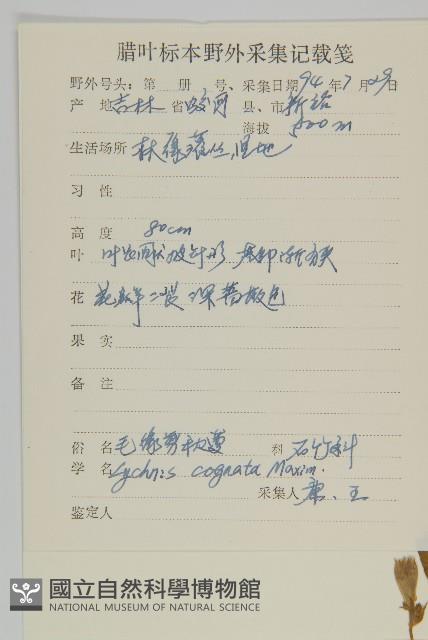 腊叶标本野外采集记载笺
野外号头：第 册 号、采集日期 94 年 7 月 29 日
产 地 吉林 省 蛟河 县、市 新站
海拔 500 m
生活场所 林缘灌丛,湿地
习 性
高 度 80cm
叶 叶 披针形 基部渐狭
花 花瓣二裂 深蔷薇色
果 实
备 注
俗 名 毛缘剪秋萝 科 石竹科
学 名 Lychnis cognata Maxim.
采集人 、王
鉴定人
國立自然科學博物館
NATIONAL MUSEUM OF NATURAL SCIENCE